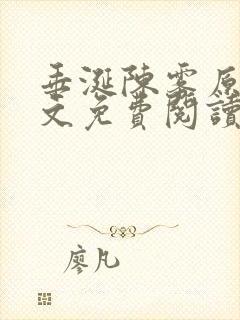 垂涎陳雾原
文免費閱讀
廖凡